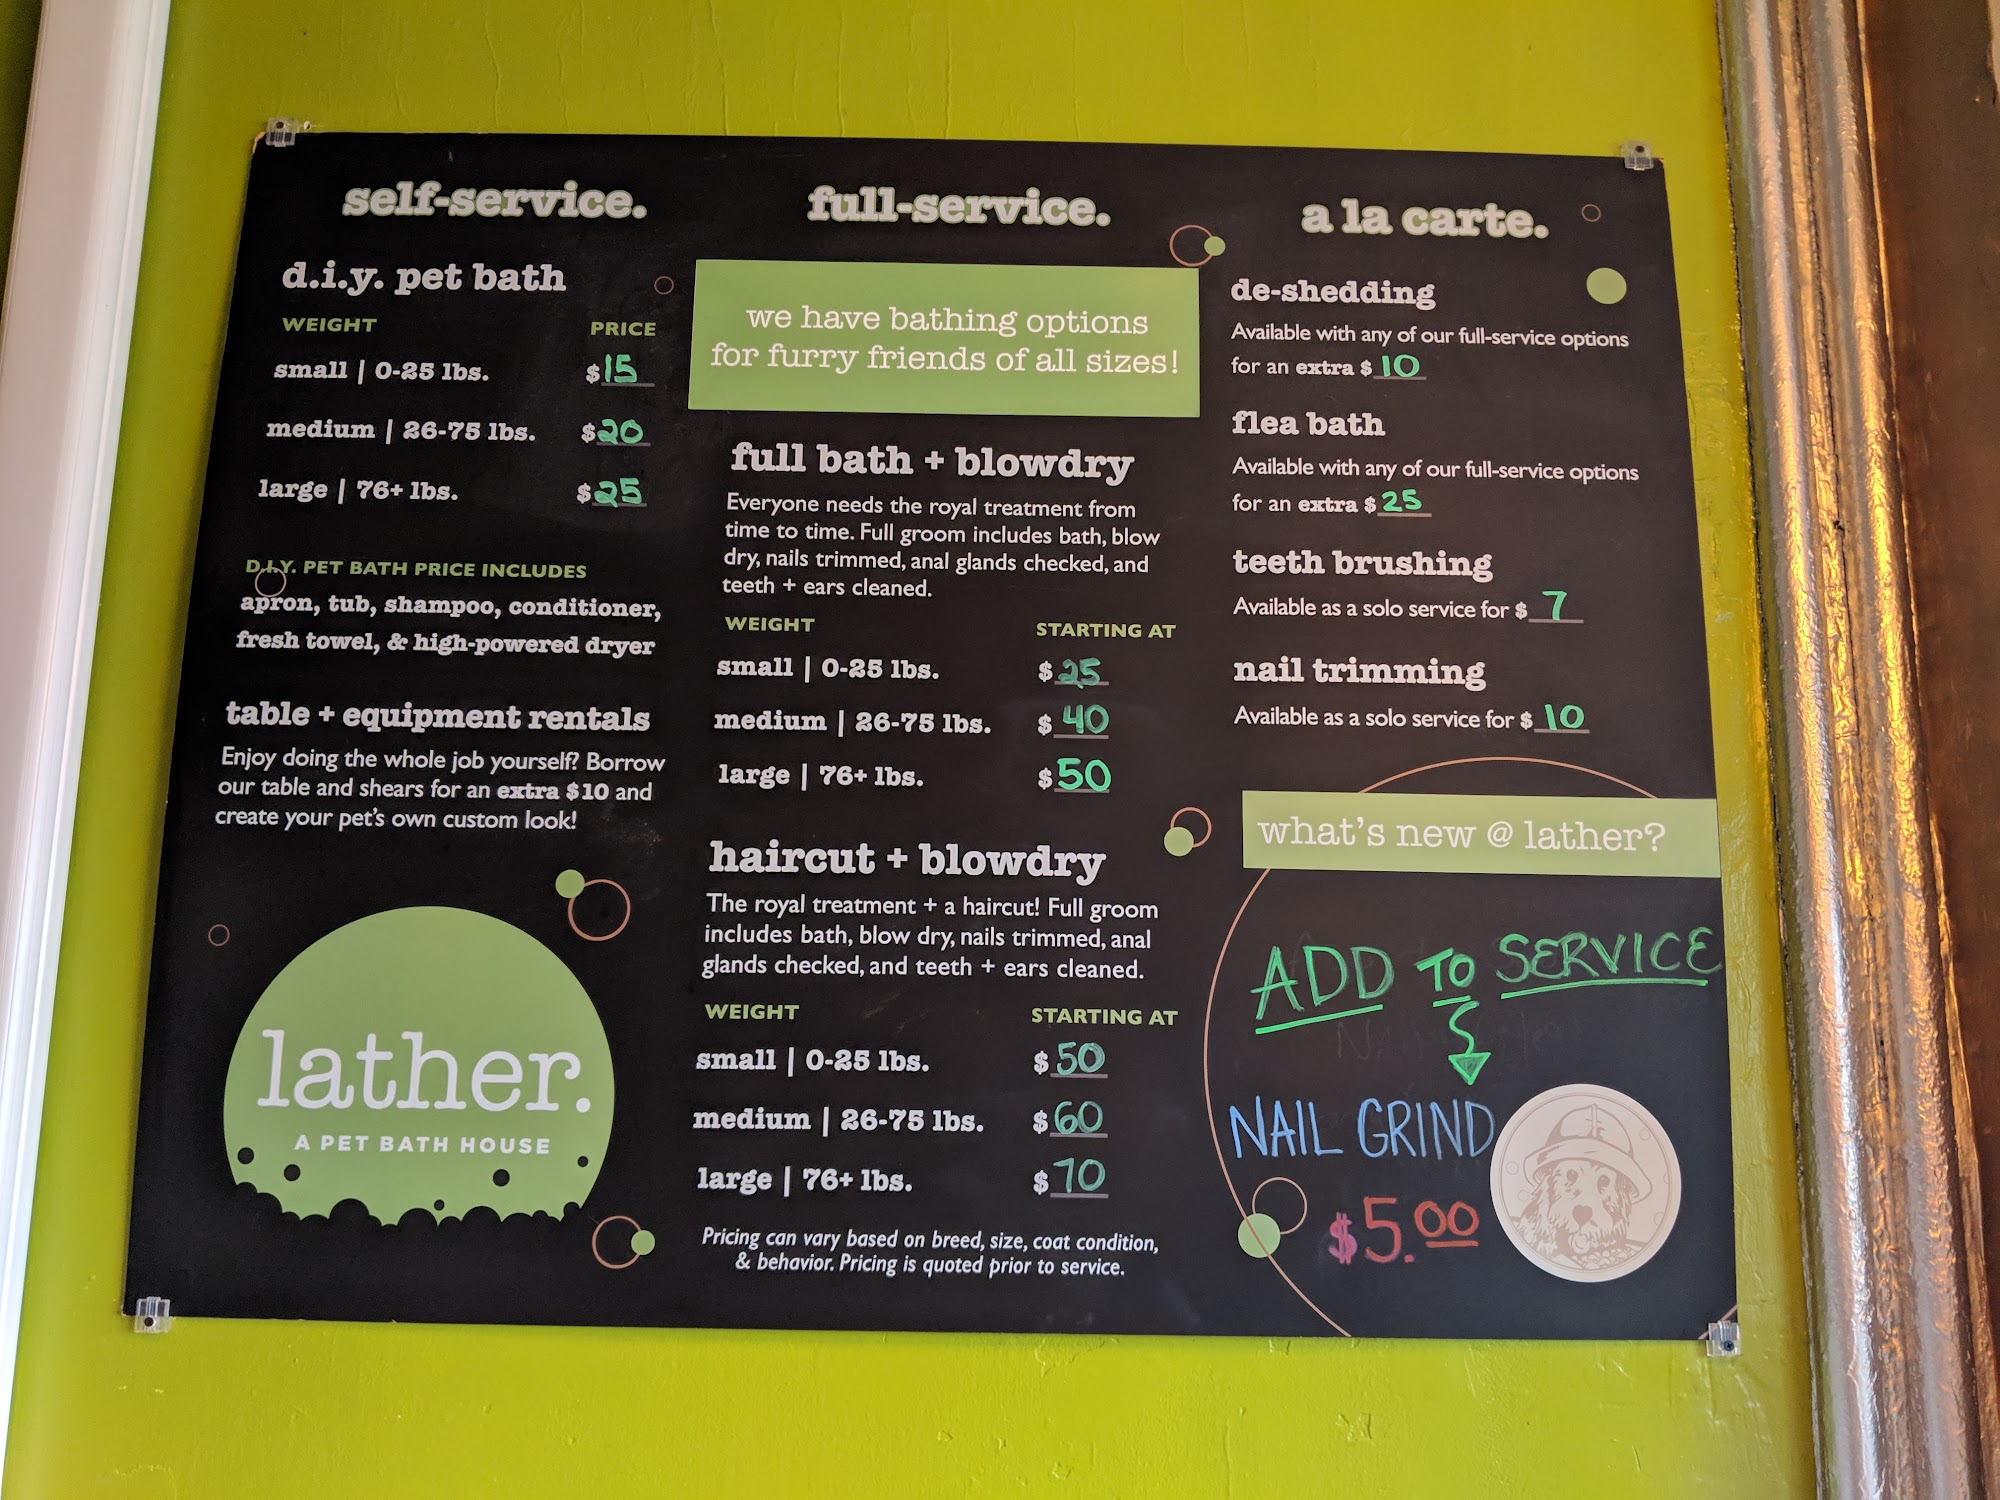 self-service.
d.i.y. pet bath
WEIGHT PRICE
small | 0-25 lbs. $15
medium | 26-75 lbs. $20
large | 76+ lbs. $25
D.I.Y. PET BATH PRICE INCLUDES
apron, tub, shampoo, conditioner,
fresh towel, & high-powered dryer
table + equipment rentals
Enjoy doing the whole job yourself? Borrow
our table and shears for an extra $10 and
create your pet's own custom look!
lather.
A PET BATH HOUSE
full-service.
we have bathing options
for furry friends of all sizes!
full bath + blowdry
Everyone needs the royal treatment from
time to time. Full groom includes bath, blow
dry, nails trimmed, anal glands checked, and
teeth + ears cleaned.
WEIGHT STARTING AT
small | 0-25 lbs. $25
medium | 26-75 lbs. $40
large | 76+ lbs. $50
haircut + blowdry
The royal treatment + a haircut! Full groom
includes bath, blow dry, nails trimmed, anal
glands checked, and teeth + ears cleaned.
WEIGHT STARTING AT
small | 0-25 lbs. $50
medium | 26-75 lbs. $60
large | 76+ lbs. $70
Pricing can vary based on breed, size, coat condition,
& behavior. Pricing is quoted prior to service.
a la carte.
de-shedding
Available with any of our full-service options
for an extra $10
flea bath
Available with any of our full-service options
for an extra $25
teeth brushing
Available as a solo service for $7
nail trimming
Available as a solo service for $10
what's new @ lather?
ADD TO SERVICE
NAIL GRIND
$5.00